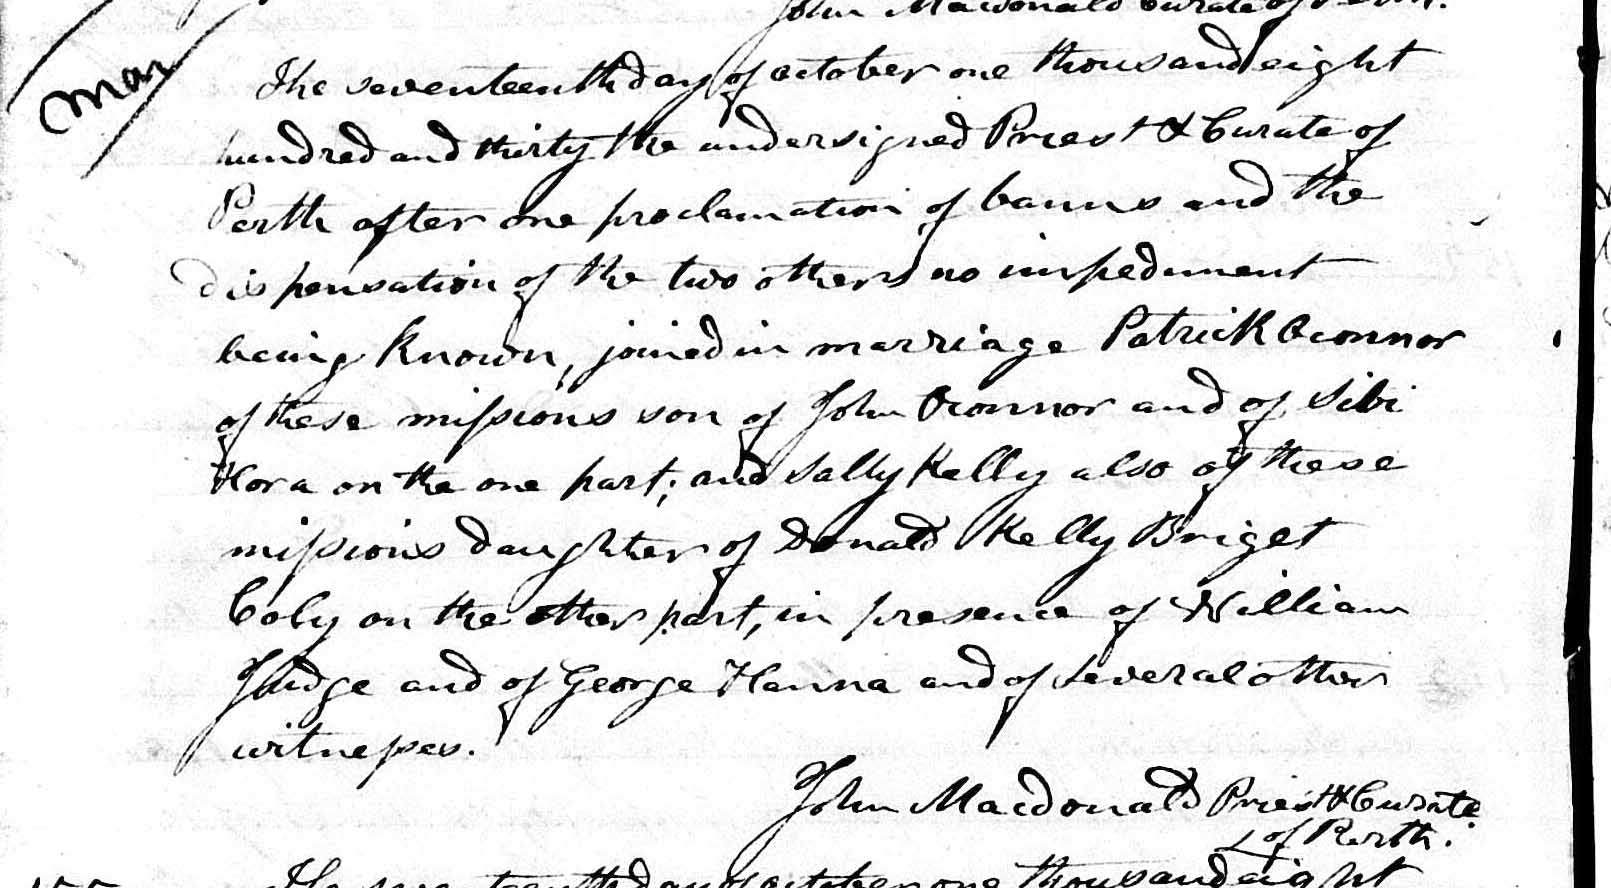 John Macdonald Curate of Perth.
Mar
The seventeenth day of october one thousand eight
hundred and thirty the undersigned Priest & Curate of
Perth after one proclamation of banns and the
dispensation of the two others no impediment
being known, joined in marriage Patrick Oconnor
of these missions son of John Oconnor and of Sibi
Hora on the one part; and Sally Kelly also of these
missions daughter of Donald Kelly Briget
Coly on the other part, in presence of William
Judge and of George Hanna and of several other
witnesses.
John Macdonald Priest & Curate
of Perth.
The seventeenth day of october one thousand eight